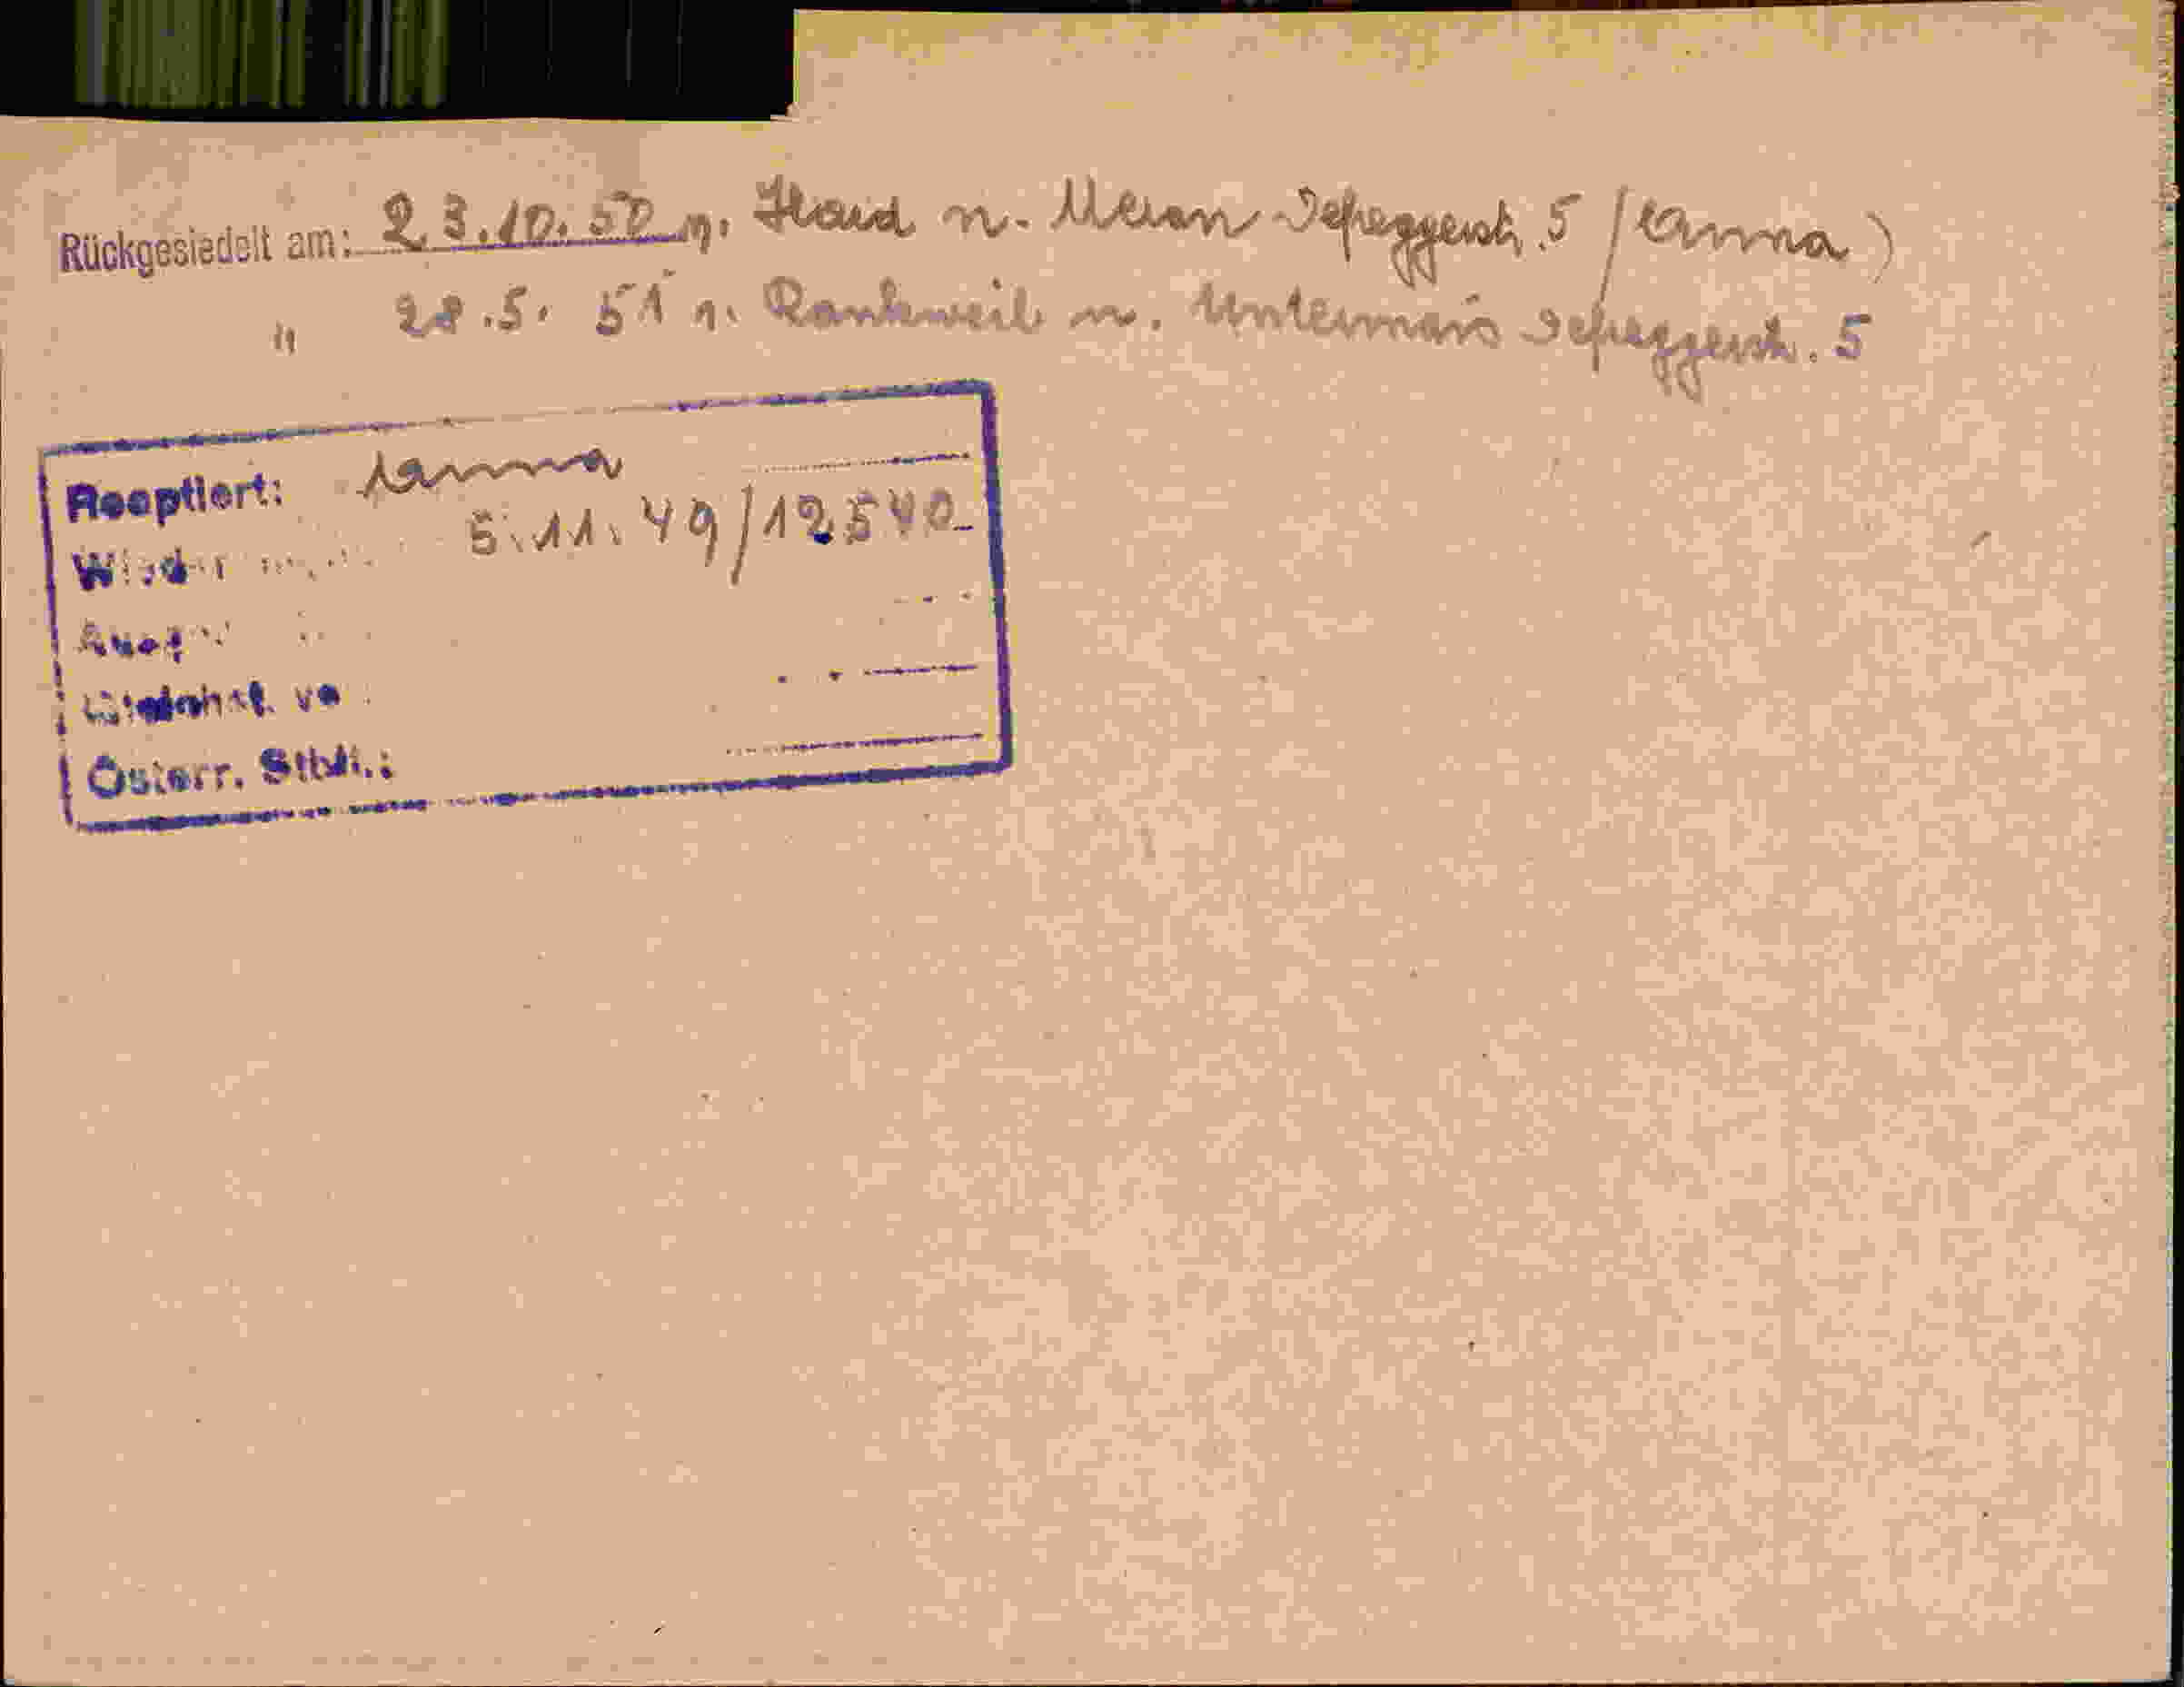 Rückgesiedelt am: 23.10.50 v. Hard n. Meran Defreggerstr. 5 (Anna)
" 28.5. 51 v. Rankweil n. Untermais Defreggerstr. 5
Reoptiert: Anna
5.11.49/12540
Österr. Stbü.: